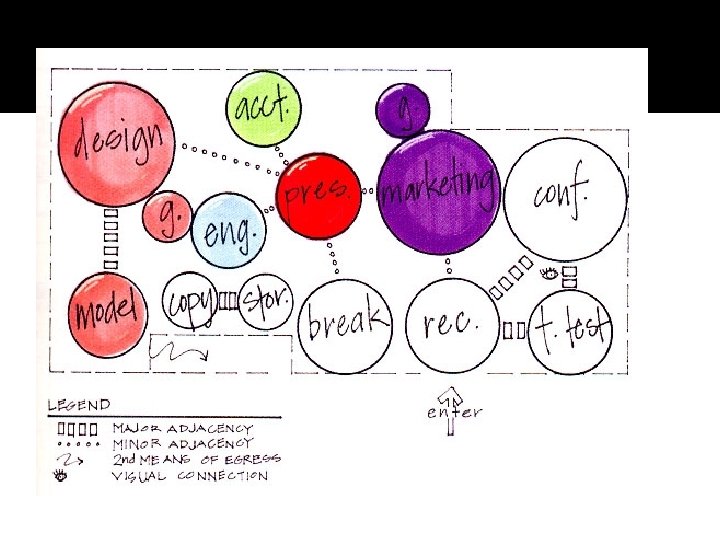 acct.
g.
design
pres.
marketing
conf.
g.
eng.
model
copy
stor.
break
rec.
t. test
enter
LEGEND
MAJOR ADJACENCY
MINOR ADJACENCY
2nd MEANS OF EGRESS
VISUAL CONNECTION